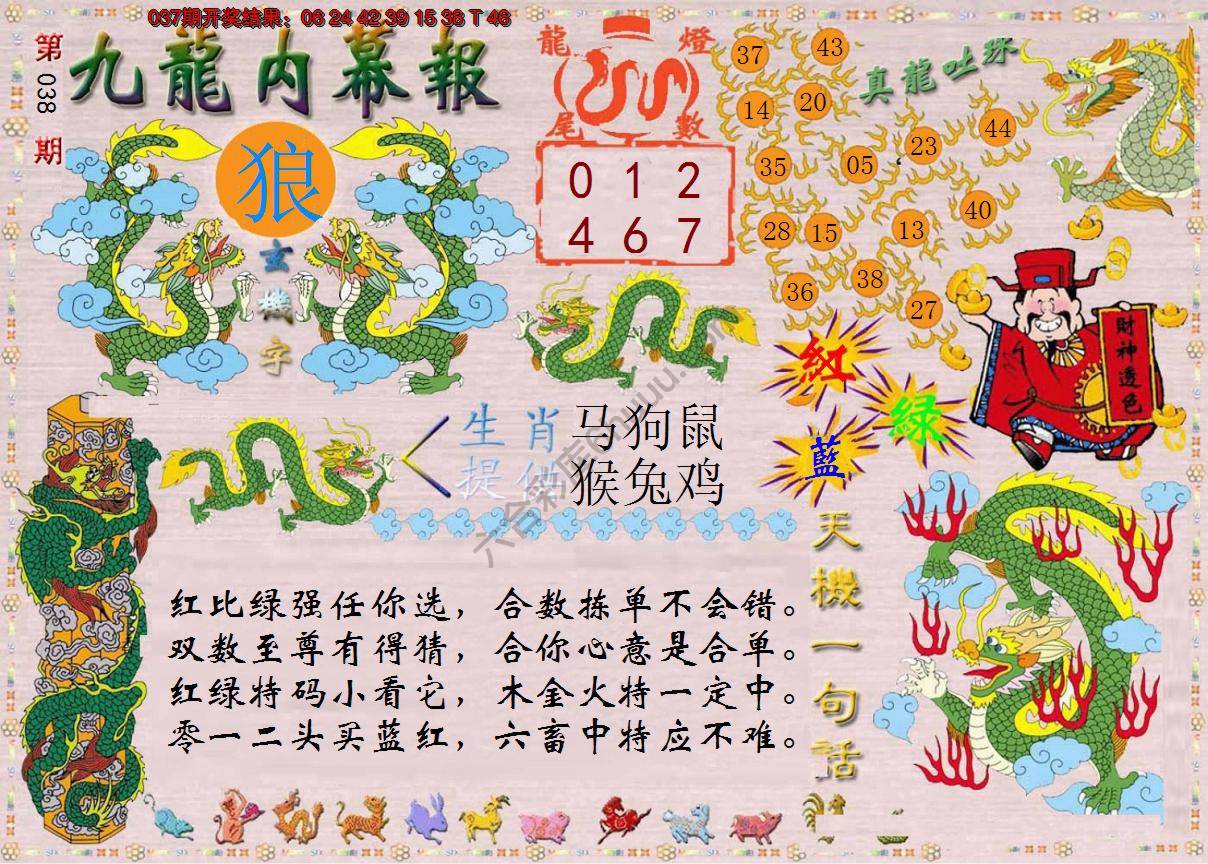 037期开奖结果：06 24 42 39 15 38 T 46
第038期
九龍内幕報
狼
玄機字
龍燈
尾數
0 1 2
4 6 7
真龍吐珠
37 43
14 20
35 05 23 44
28 15 13 40
36 38 27
財神透色
紅
綠
藍
生肖 马狗鼠
提供 猴兔鸡
天機一句話
红比绿强任你选，合数拣单不会错。
双数至尊有得猜，合你心意是合单。
红绿特码小看它，木金火特一定中。
零一二头买蓝红，六畜中特应不难。